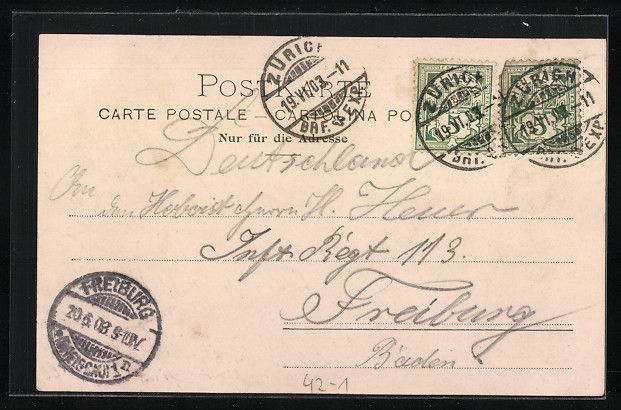 POSTKARTE
CARTE POSTALE — CARTOLINA PO
Nur für die Adresse
ZÜRICH
19.VI.03.-11
BRF. EXP.
ZÜRICH
19.VI.03.
BRF.
ZÜRICH
19.VI.03.-11
EXP.
Deutschland
An
den Hoboist Herrn H. Heuer
Inft Regt 113.
Freiburg
Baden
FREIBURG
20.6.03.
42-1